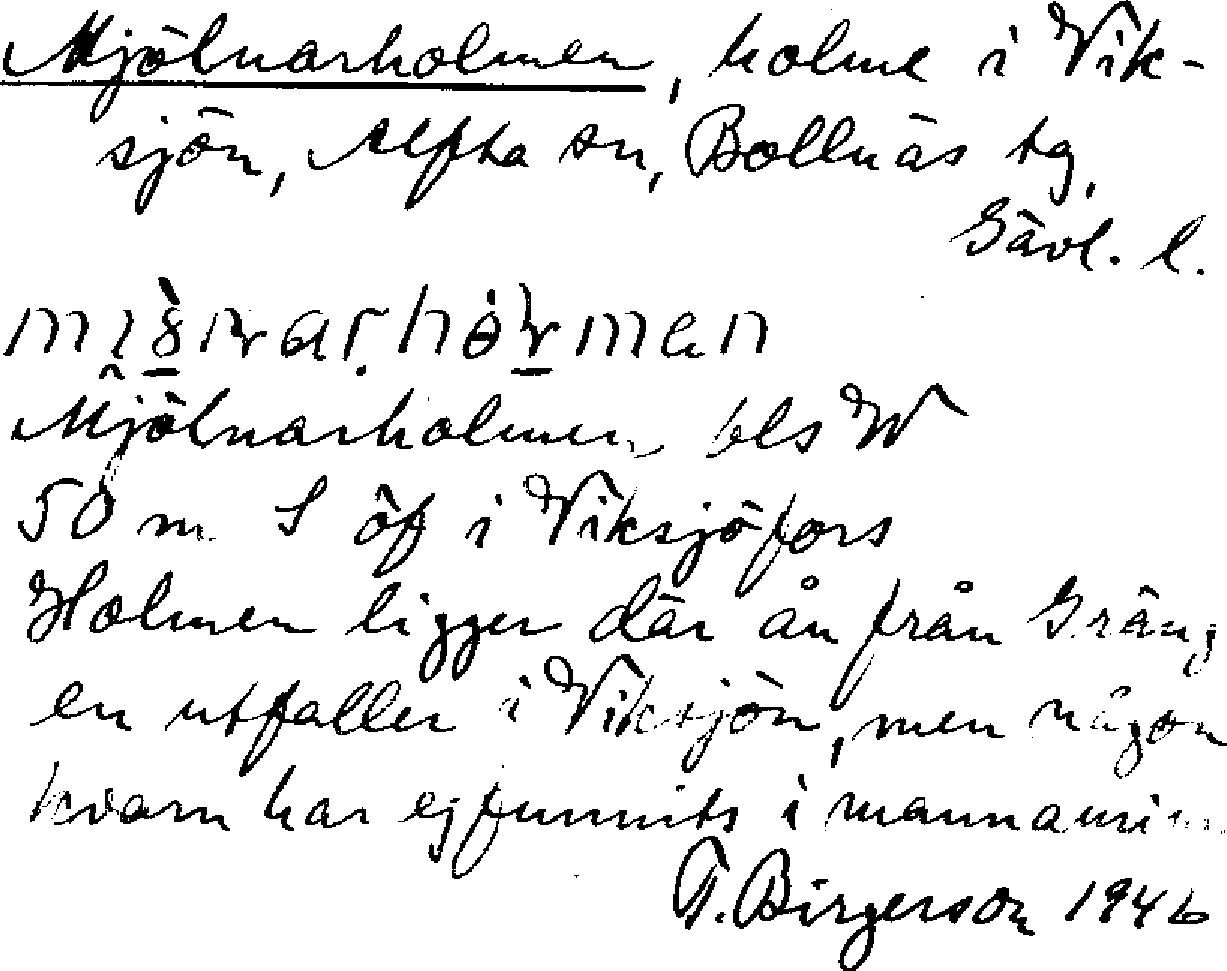 Mjölnarholmen, holme i Vik-
sjön, Alfta sn, Bollnäs tg,
Gävl. l.
Mjölnarholmen, bls W
50 m S öf i Viksjöfors
Holmen ligger där ån från Gräng
en utfaller i Viksjön, men någon
kvarn har ej funnits i mannamin
T. Birgerson 1946